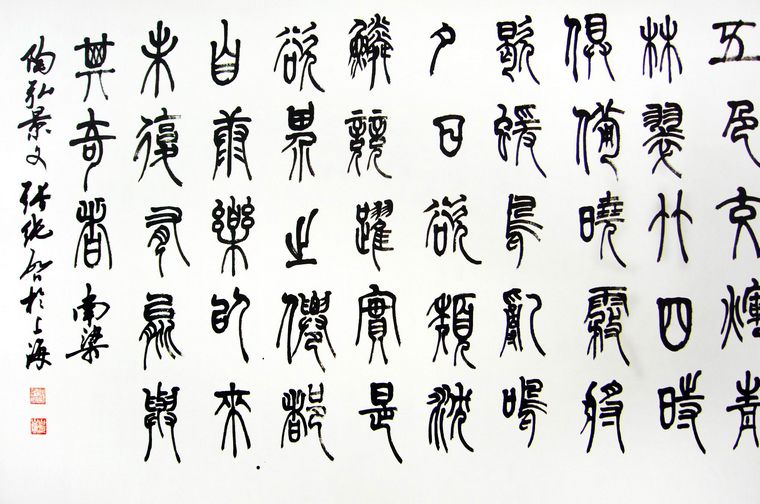 五色交煇青
林翠竹四時
俱備曉霧將
歇蝯鳥亂鳴
夕日欲頹沈
鱗競躍實是
欲界之僊都
自康樂㠯來
未復有能與
其奇者南梁
陶弘景文於上海